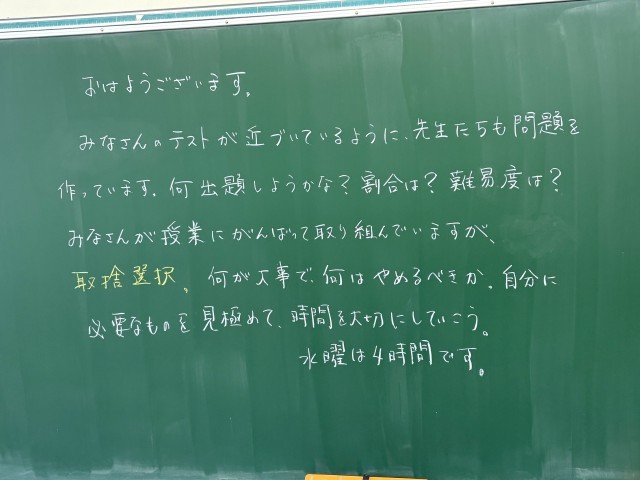 おはようございます。
みなさんのテストが近づいているように、先生たちも問題を
作っています。何出題しようかな？割合は？難易度は？
みなさんが授業にがんばって取り組んでいますが、
取捨選択。何が大事で、何はやめるべきか。自分に
必要なものを見極めて、時間を大切にしていこう。
水曜は4時間です。